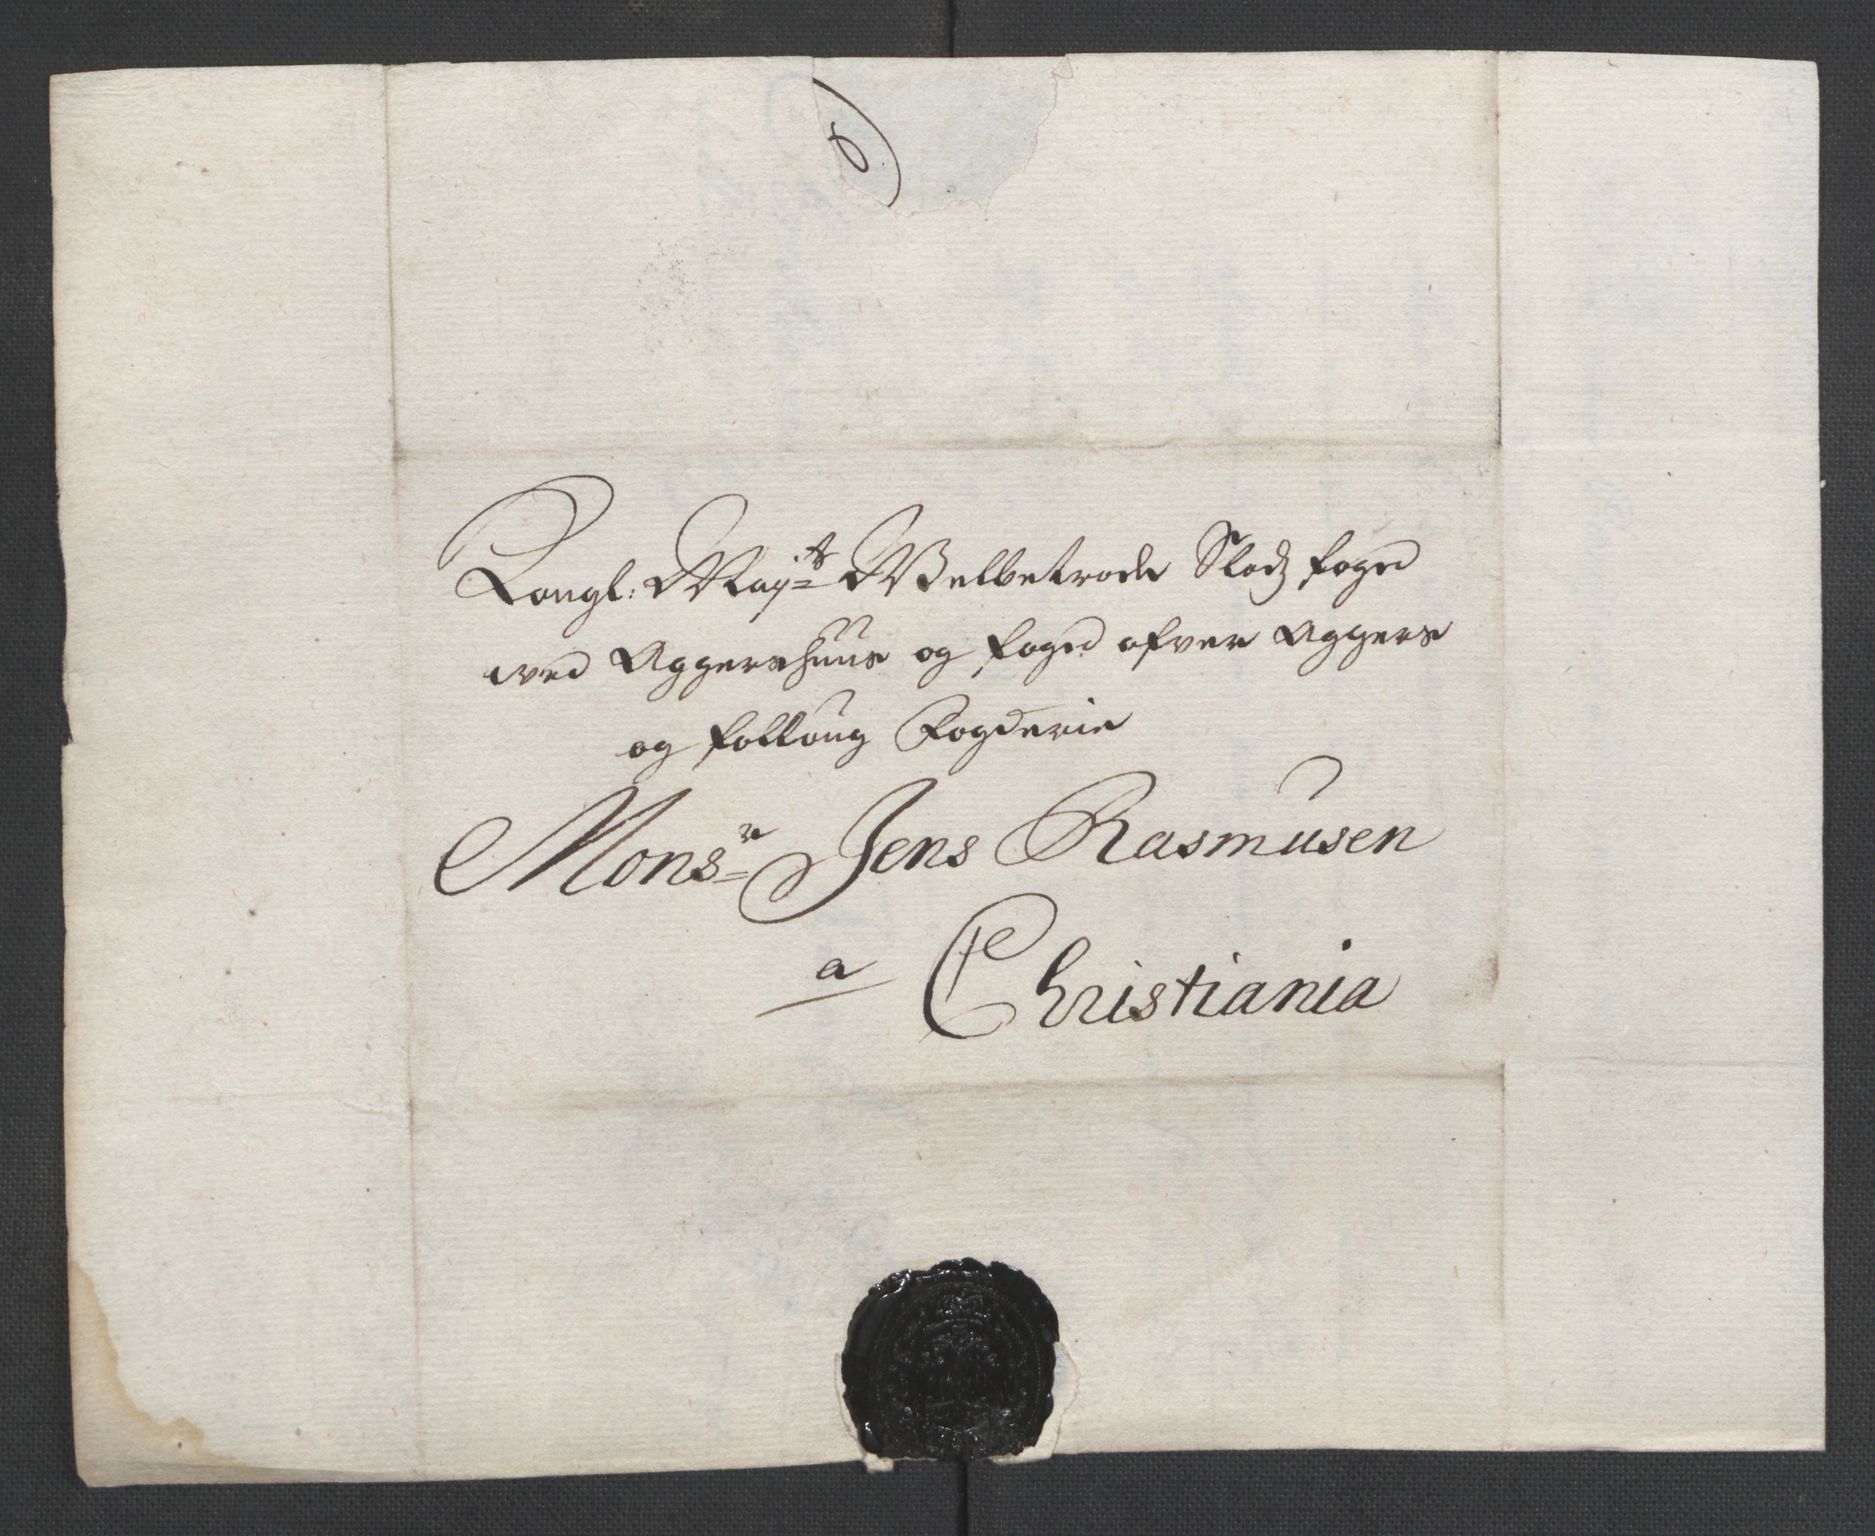 Kongl: Mayts Welbetrode Slodz foged
wed Aggershuus og foged ofver Aggers
og folloug Fogderie
Monsr Jens Rasmusen
a Christiania